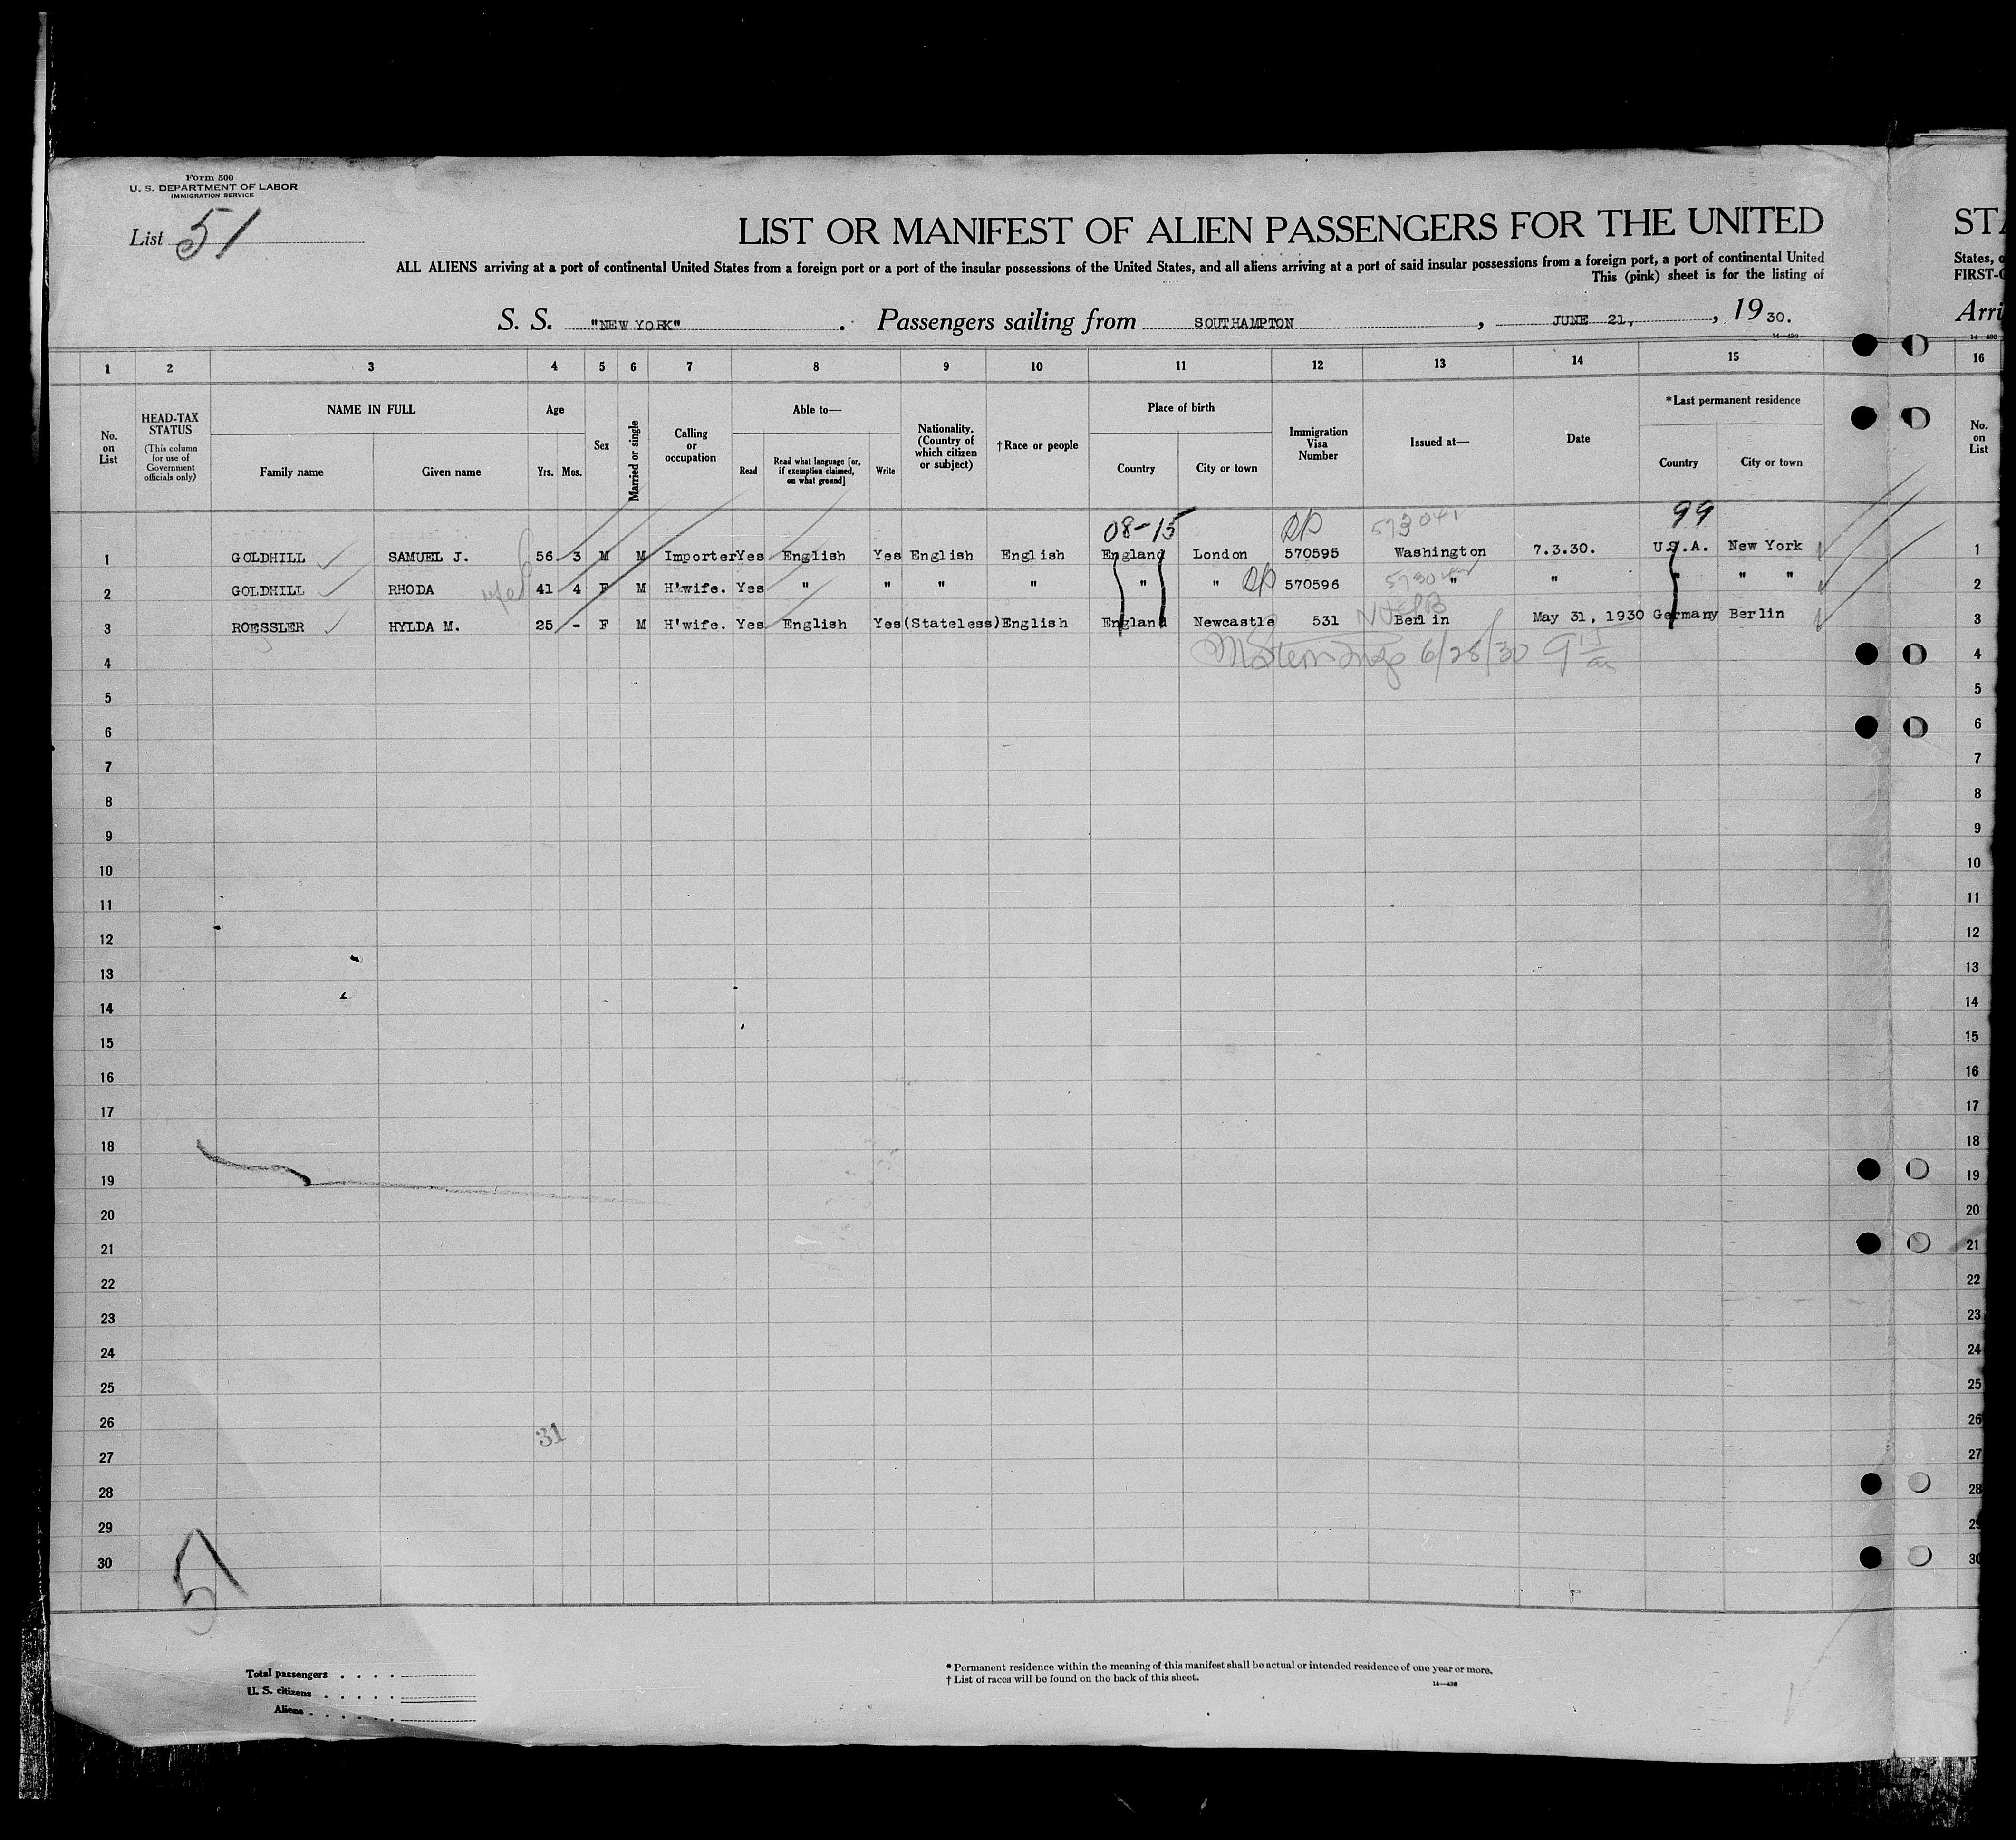 Form 500
U. S. DEPARTMENT OF LABOR
IMMIGRATION SERVICE
List 51
LIST OR MANIFEST OF ALIEN PASSENGERS FOR THE UNITED
STA
ALL ALIENS arriving at a port of continental United States from a foreign port or a port of the insular possessions of the United States, and all aliens arriving at a port of said insular possessions from a foreign port, a port of continental United
States, o
This (pink) sheet is for the listing of
FIRST-C
S. S. "NEW YORK". Passengers sailing from SOUTHAMPTON, JUNE 21, , 1930.
Arri
14—430
1 2 3 4 5 6 7 8 9 10 11 12 13 14 15 16
No. on List
HEAD-TAX STATUS (This column for use of Government officials only)
NAME IN FULL
Family name Given name
Age
Yrs. Mos.
Sex
Married or single
Calling or occupation
Able to—
Read
Read what language [or, if exemption claimed, on what ground]
Write
Nationality. (Country of which citizen or subject)
†Race or people
Place of birth
Country City or town
Immigration Visa Number
Issued at—
Date
*Last permanent residence
Country City or town
No. on List
08-15 573041 99
1 GOLDHILL SAMUEL J. 56 3 M M Importer Yes English Yes English English England London 570595 Washington 7.3.30. U.S.A. New York 1
2 GOLDHILL RHODA 41 4 F M H'wife. Yes " " " " " " 570596 " " " " " 2
3 ROESSLER HYLDA M. 25 - F M H'wife. Yes English Yes (Stateless) English England Newcastle 531 Berlin May 31, 1930 Germany Berlin 3
4 6/28/30 4
5 5
6 6
7 7
8 8
9 9
10 10
11 11
12 12
13 13
14 14
15 15
16 16
17 17
18 18
19 19
20 20
21 21
22 22
23 23
24 24
25 25
26 26
31
27 27
28 28
29 29
30 30
51
Total passengers . . . .
U. S. citizens . . . . .
Aliens . . . . . .
* Permanent residence within the meaning of this manifest shall be actual or intended residence of one year or more.
† List of races will be found on the back of this sheet.
14—430